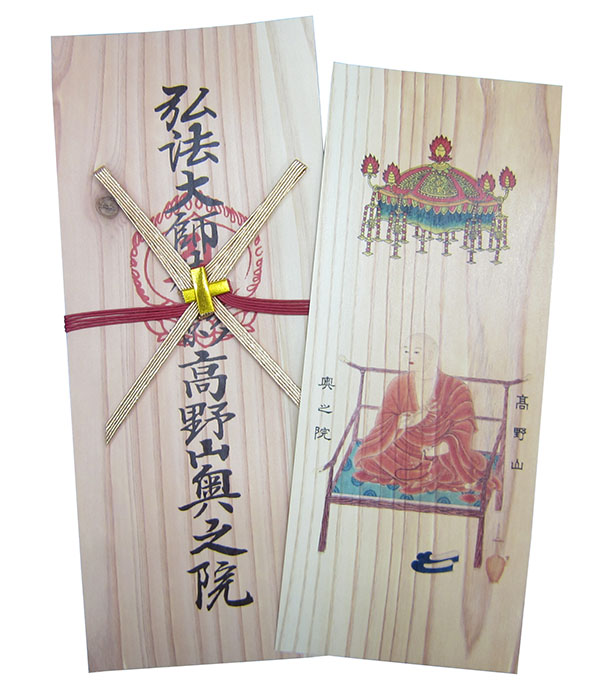 弘法大師
高野山奥之院
髙野山
奥之院